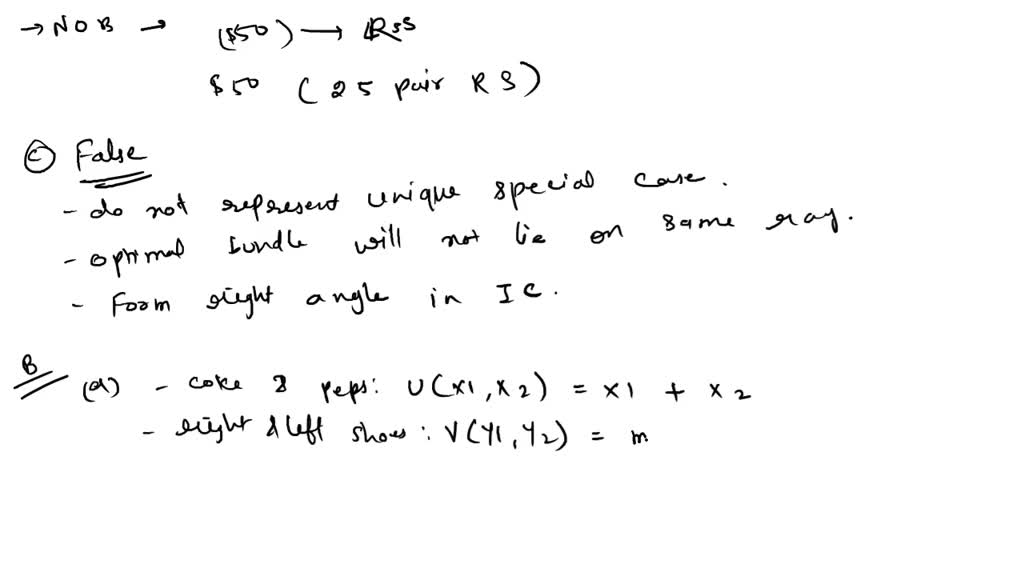 → NOB → ($50) → RSS
$50 (25 pair RS)
(c) False
- do not represent unique special case.
- optimal bundle will not lie on same ray.
- Form right angle in IC.
B
(a) - coke & peps: U(x1, x2) = x1 + x2
- right & left shoes: V(Y1, Y2) = m